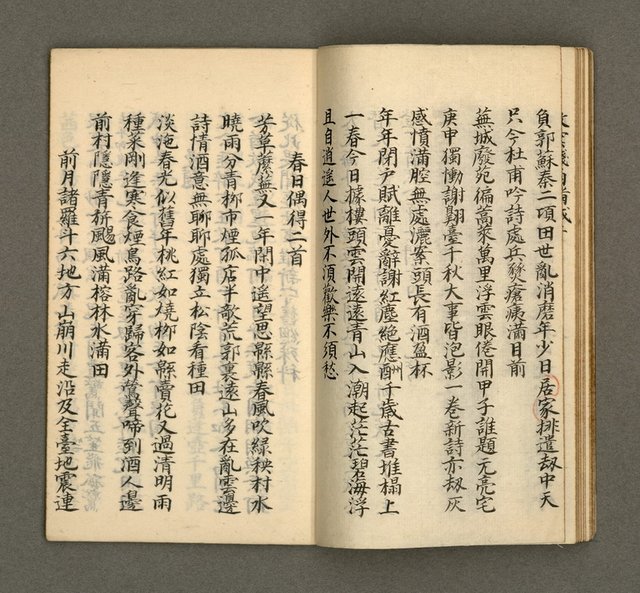 負郭蘇秦二項田世亂消磨年少日居家排遣劫中天
只今杜甫吟詩處兵燹瘡痍滿目前
蕪城廢苑偏高來萬里浮雲眼倦開甲子誰題元亮宅
庚申獨慟謝翱臺千秋大事皆泡影一卷新詩亦劫灰
感憤滿腔無處灑案頭長有酒盈杯
年年閉戶賦離憂辭謝紅塵絶應酬千歲古書堆榻上
一春今日據樓頭雲開遠遠青山入潮起茫茫碧海浮
且自逍遥人世外不須歡樂不須愁
春日偶得二首
芳草蘼蕪又一年閣中遥望思緜緜春風吹緑秧村水
曉雨分青柳市煙孤店半欹荒郭裏遠山多在亂雲邊
詩情酒意無聊處獨立松陰看種田
淡沲春光似舊年桃紅如燒柳如緜賣花又過清明雨
種菜剛逢寒食煙鳥路亂穿歸客外鶯聲啼到酒人邊
前村隱隱青帘颺風滿榕林水滿田
前月諸羅斗六地方山崩川走沿及全臺地震連